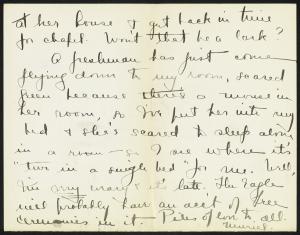 at her house & get back in time
for chapel. Won't that be a lark?
A freshman has just come
flying down to my room, scared
green because there's a mouse in
her room, so I've put her into my
bed & she's scared to sleep alone
in a room – so I see where it's
"two in a single bed" for me. Well,
I'm my way & it's late. The Eagle
will probably have an acct of Tree
Ceremonies in it – Piles of love to all.
Muriel.